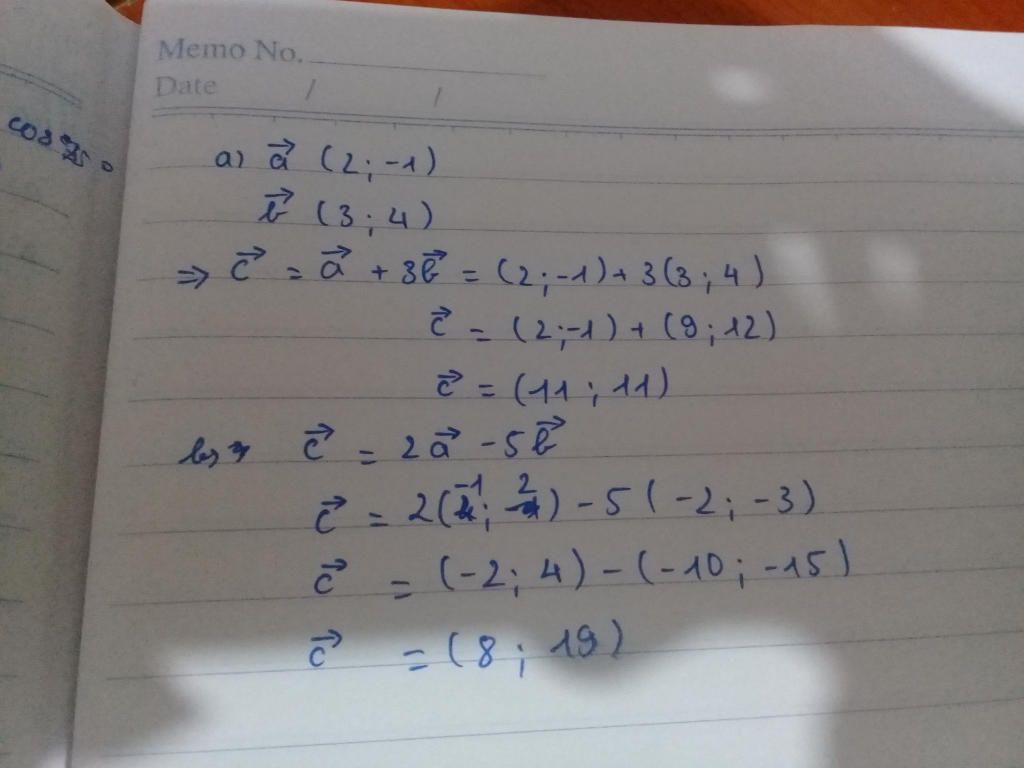 Memo No.
Date / /
a) a⃗ (2; -1)
b⃗ (3; 4)
⇒ c⃗ = a⃗ + 3b⃗ = (2; -1) + 3(3; 4)
c⃗ = (2; -1) + (9; 12)
c⃗ = (11; 11)
b) c⃗ = 2a⃗ - 5b⃗
c⃗ = 2(-1; 2) - 5(-2; -3)
c⃗ = (-2; 4) - (-10; -15)
c⃗ = (8; 19)
cos